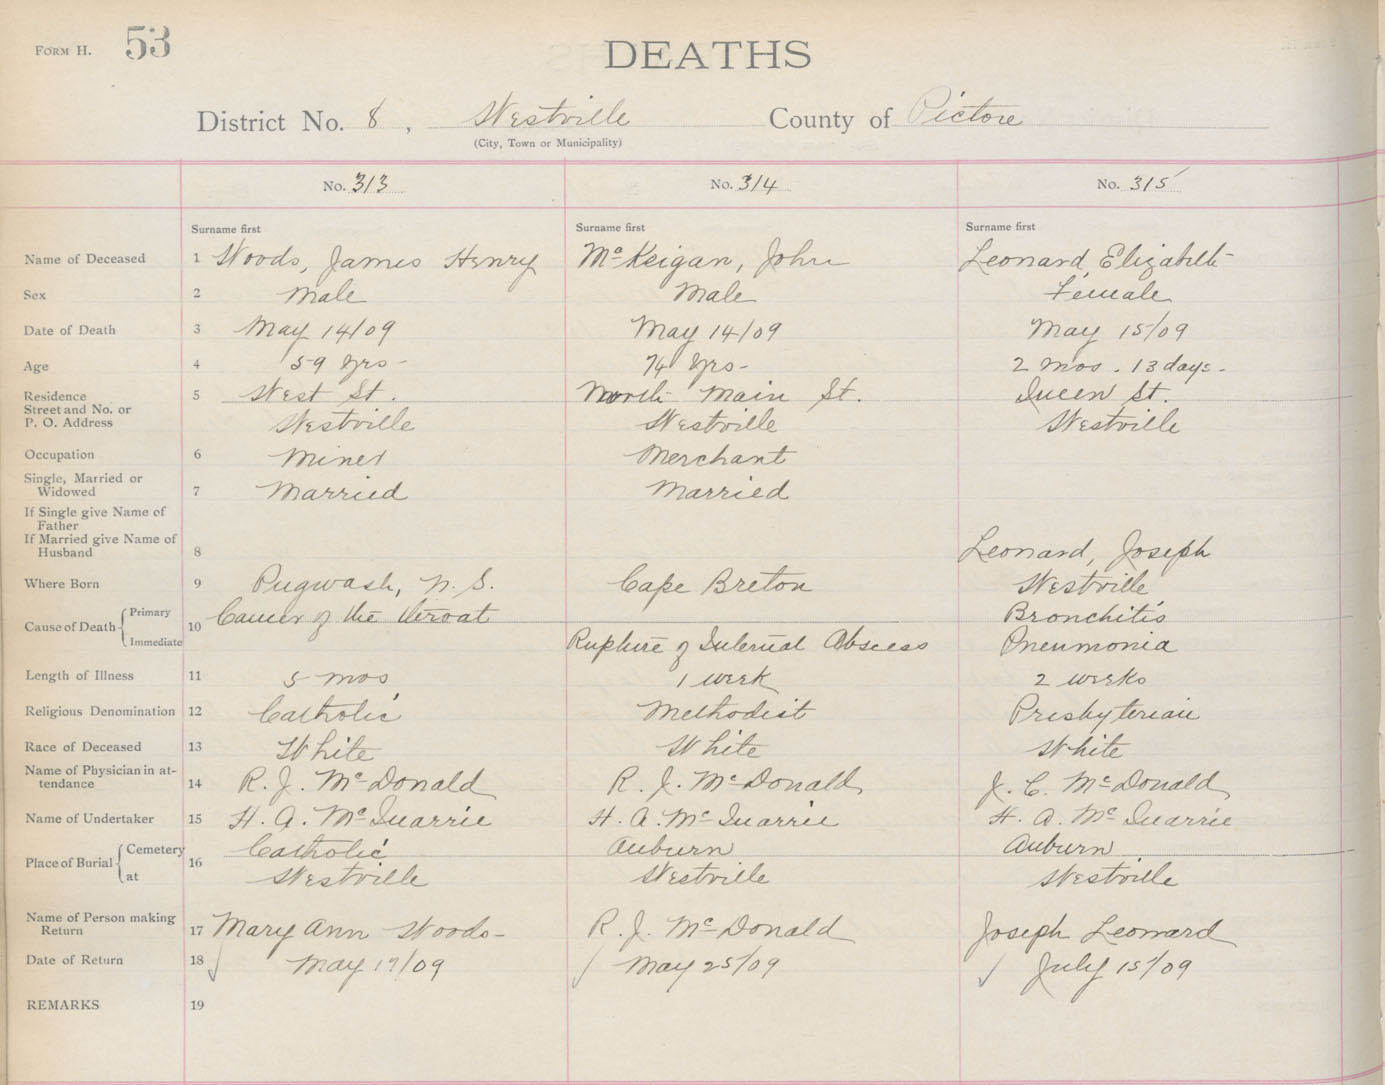 FORM H. 53
DEATHS
District No. 8, Westville County of Pictou
(City, Town or Municipality)
No. 313 No. 314 No. 315
Surname first Surname first Surname first
Name of Deceased 1 Woods, James Henry McKeigan, John Leonard, Elizabeth
Sex 2 Male Male Female
Date of Death 3 May 14/09 May 14/09 May 15/09
Age 4 59 yrs - 74 yrs - 2 mos. 13 days.
Residence 5 West St. North Main St. Queen St.
Street and No. or
P. O. Address Westville Westville Westville
Occupation 6 Miner Merchant
Single, Married or
Widowed 7 Married Married
If Single give Name of
Father
If Married give Name of
Husband 8 Leonard, Joseph
Where Born 9 Pugwash, N. S. Cape Breton Westville
Cause of Death { Primary 10 Cancer of the throat Bronchitis
Immediate Rupture of Internal Abscess Pneumonia
Length of Illness 11 5 mos 1 week 2 weeks
Religious Denomination 12 Catholic Methodist Presbyterian
Race of Deceased 13 White White White
Name of Physician in at-
tendance 14 R. J. McDonald R. J. McDonald J. C. McDonald
Name of Undertaker 15 H. A. McQuarrie H. A. McQuarrie H. A. McQuarrie
Place of Burial { Cemetery 16 Catholic Auburn Auburn
at Westville Westville Westville
Name of Person making
Return 17 Mary Ann Woods - R. J. McDonald Joseph Leonard
Date of Return 18 May 25/09 July 15/09
REMARKS 19